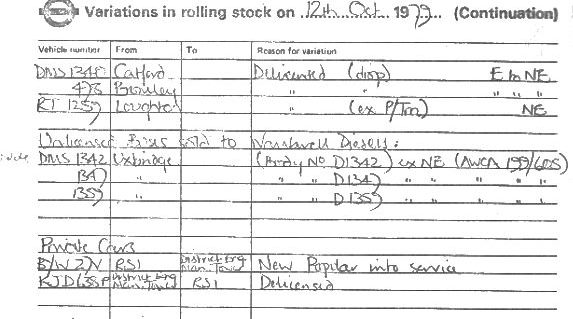 Variations in rolling stock on 12th Oct 1979 (Continuation)
Vehicle number From To Reason for variation
DMS 1340 Catford Delicensed (disp) E in NE
478 Bromley " " " " "
RT 1257 Loughton " (ex P/Trn) NE
Unlicensed Buses sold to Wombwell Diesels:
DMS 1342 Uxbridge (Body No D1342) ex NE (AWCA 199/605)
1347 " " " D1347 " " " "
1357 " " " D1357 " " " "
Private Cars
RS1 District Eng New Popular into service
KJD 638P District Eng RS1 Delicensed